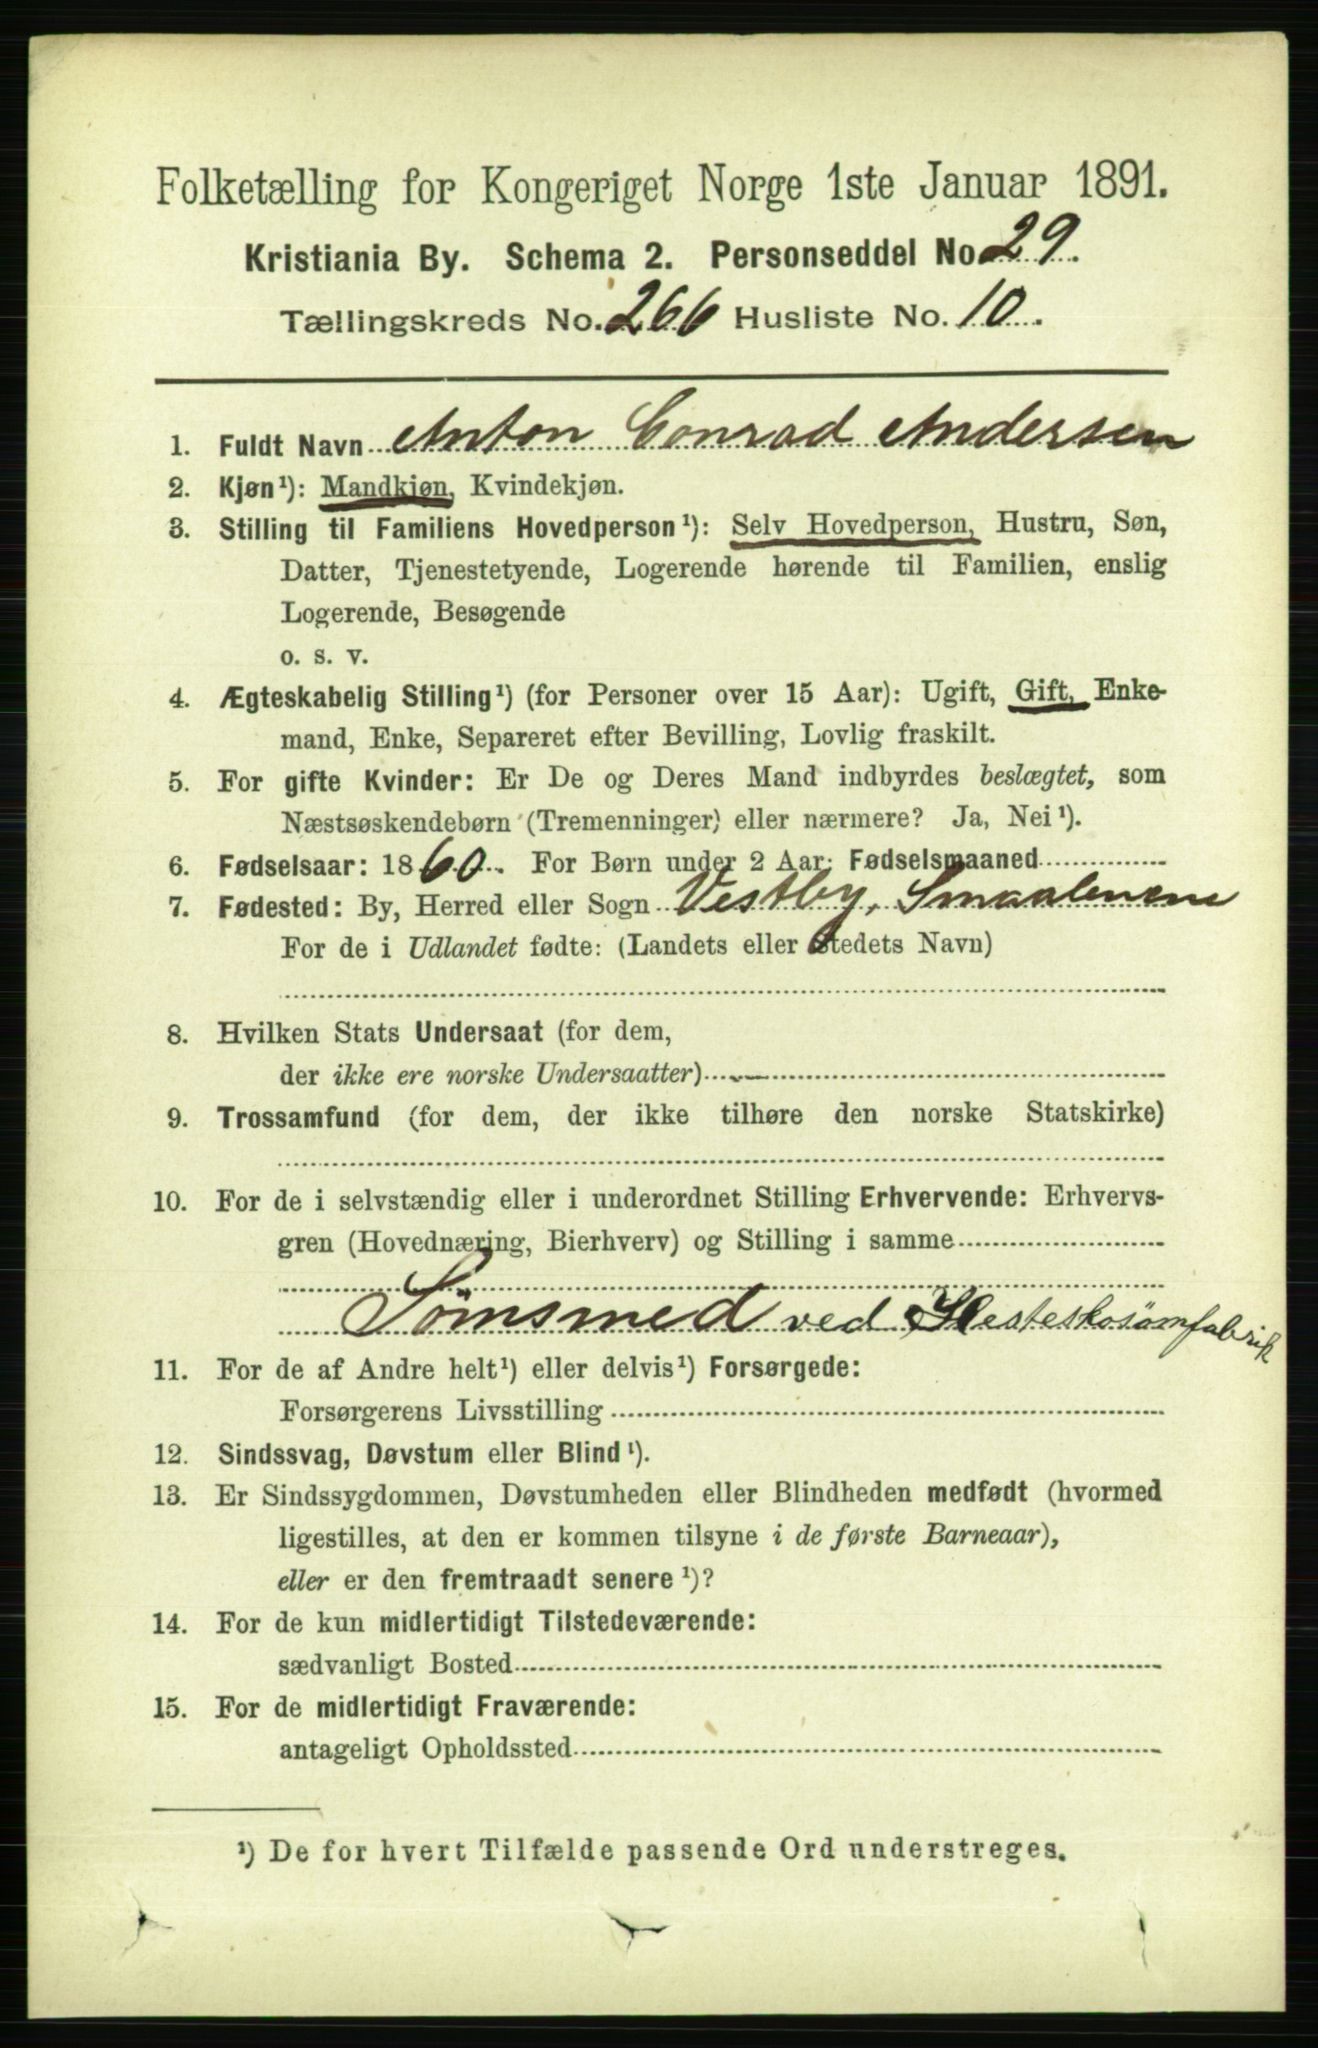 Folketælling for Kongeriget Norge 1ste Januar 1891.
Kristiania By. Schema 2. Personseddel No. 29.
Tællingskreds No. 266 Husliste No. 10.
1. Fuldt Navn Anton Conrad Andersen
2. Kjøn¹): Mandkjøn, Kvindekjøn.
3. Stilling til Familiens Hovedperson¹): Selv Hovedperson, Hustru, Søn,
Datter, Tjenestetyende, Logerende hørende til Familien, enslig
Logerende, Besøgende
o. s. v.
4. Ægteskabelig Stilling¹) (for Personer over 15 Aar): Ugift, Gift, Enke-
mand, Enke, Separeret efter Bevilling, Lovlig fraskilt.
5. For gifte Kvinder: Er De og Deres Mand indbyrdes beslægtet, som
Næstsøskendebørn (Tremenninger) eller nærmere? Ja, Nei¹).
6. Fødselsaar: 1860. For Børn under 2 Aar: Fødselsmaaned
7. Fødested: By, Herred eller Sogn Vestby, Smaalenene
For de i Udlandet fødte: (Landets eller Stedets Navn)
8. Hvilken Stats Undersaat (for dem,
der ikke ere norske Undersaatter)
9. Trossamfund (for dem, der ikke tilhøre den norske Statskirke)
10. For de i selvstændig eller i underordnet Stilling Erhvervende: Erhvervs-
gren (Hovednæring, Bierhverv) og Stilling i samme
Sömsmed ved Hesteskosömfabrik
11. For de af Andre helt¹) eller delvis¹) Forsørgede:
Forsørgerens Livsstilling
12. Sindssvag, Døvstum eller Blind¹).
13. Er Sindssygdommen, Døvstumheden eller Blindheden medfødt (hvormed
ligestilles, at den er kommen tilsyne i de første Barneaar),
eller er den fremtraadt senere¹)?
14. For de kun midlertidigt Tilstedeværende:
sædvanligt Bosted
15. For de midlertidigt Fraværende:
antageligt Opholdssted
¹) De for hvert Tilfælde passende Ord understreges.